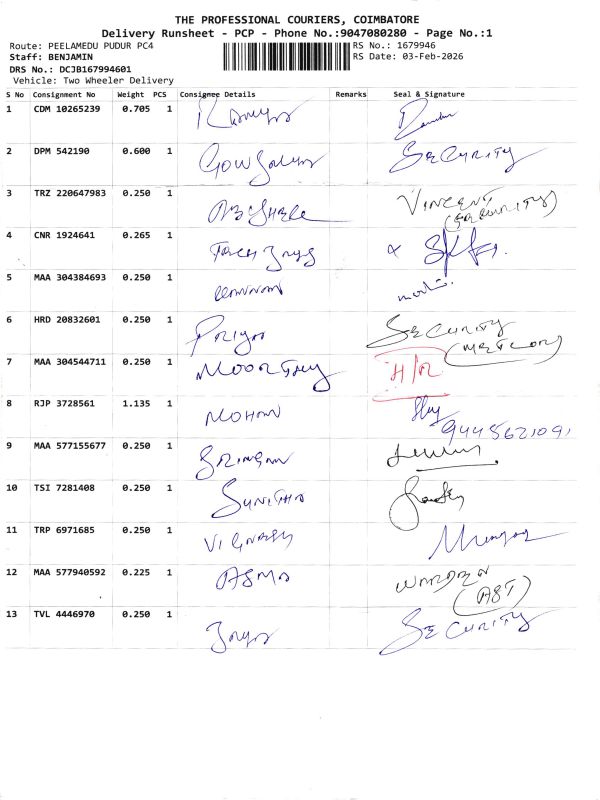 THE PROFESSIONAL COURIERS, COIMBATORE
Delivery Runsheet - PCP - Phone No.:9047080280 - Page No.:1
Route: PEELAMEDU PUDUR PC4 RS No.: 1679946
Staff: BENJAMIN RS Date: 03-Feb-2026
DRS No.: DCJB167994601
Vehicle: Two Wheeler Delivery
S No Consignment No Weight PCS Consignee Details Remarks Seal & Signature
1 CDM 10265239 0.705 1 Ramya
2 DPM 542190 0.600 1 Gowsalya SECURITY
3 TRZ 220647983 0.250 1 VINCENT
(SECURITY)
4 CNR 1924641 0.265 1
5 MAA 304384693 0.250 1
6 HRD 20832601 0.250 1 PRIYA SECURITY
7 MAA 304544711 0.250 1 MOORTHY H/R
8 RJP 3728561 1.135 1 MOHAN
9445621091
9 MAA 577155677 0.250 1
10 TSI 7281408 0.250 1 SUNITHA
11 TRP 6971685 0.250 1 VIGNESH
12 MAA 577940592 0.225 1 ASMA WARDEN
13 TVL 4446970 0.250 1 SECURITY